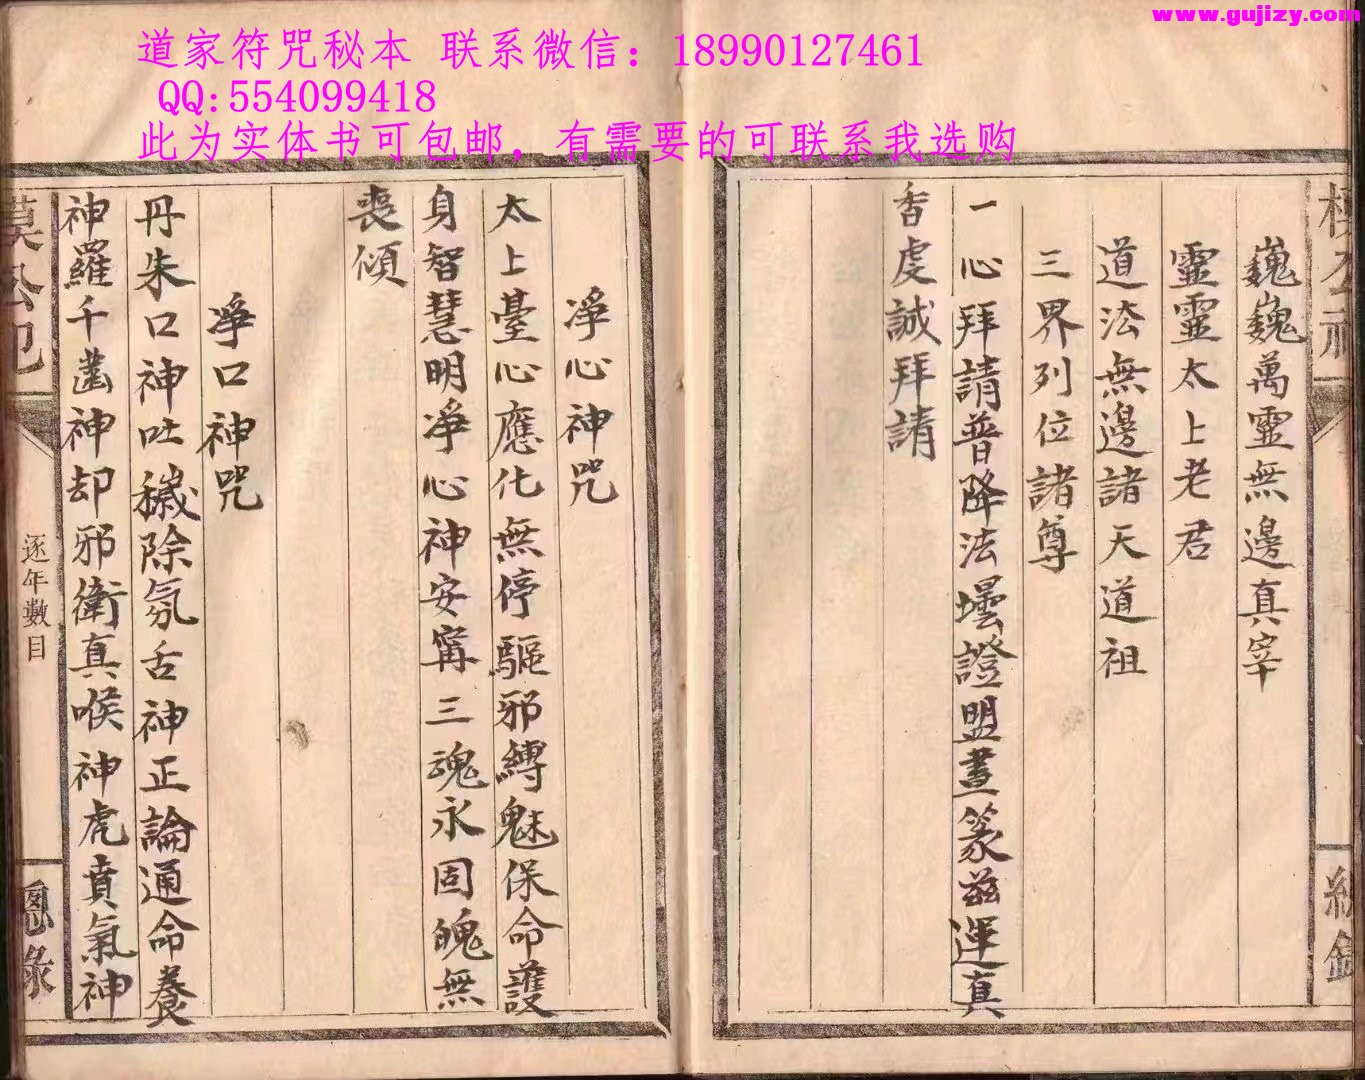 www.gujizy.com
道家符咒秘本 联系微信：18990127461
QQ:554099418
此为实体书可包邮，有需要的可联系我选购
巍巍萬靈無邊真宰
靈靈太上老君
道法無邊諸天道祖
三界列位諸尊
一心拜請普降法壇證盟畫篆茲運真
香虔誠拜請
淨心神咒
太上臺心應化無停驅邪縛魅保命護
身智慧明淨心神安寗三魂永固魄無
喪傾
淨口神咒
丹朱口神吐穢除氛舌神正論通命養
神羅千齒神却邪衛真喉神虎賁氣神
逐年數目
總錄